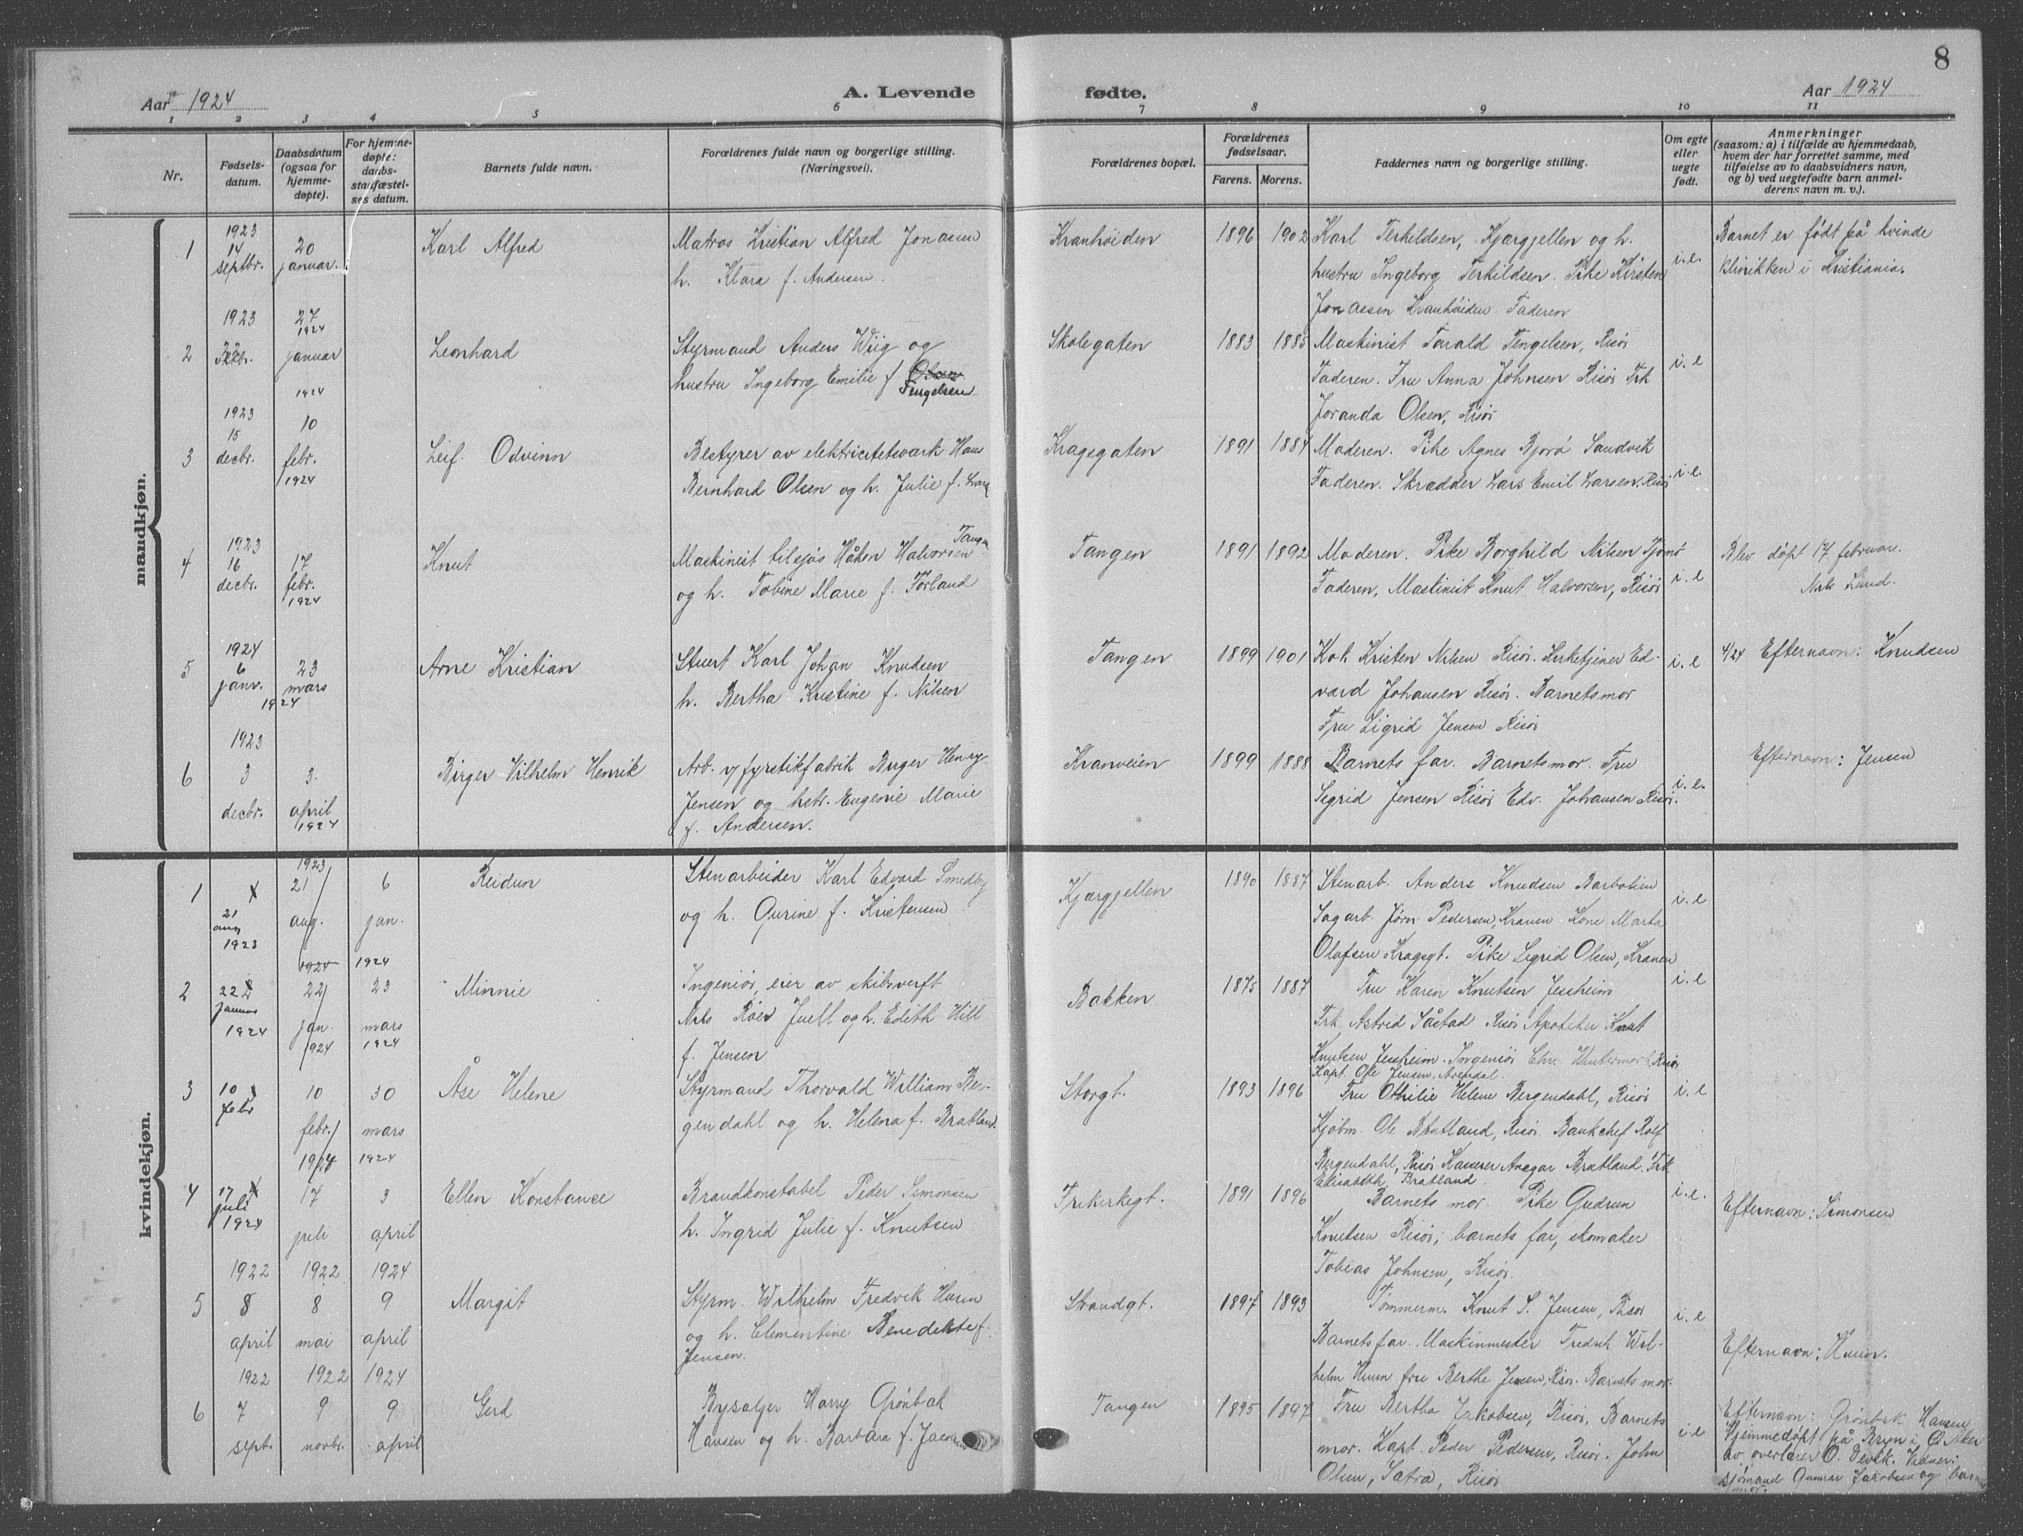 8
Aar 1924 A. Levende fødte. Aar 1924
1 2 3 4 5 6 7 8 9 10 11
Nr.
Fødsels-
datum.
Daabsdatum
(ogsaa for
hjemme-
døpte).
For hjemme-
døpte:
daabs-
stadfæstel-
ses datum.
Barnets fulde navn.
Forældrenes fulde navn og borgerlige stilling.
(Næringsvei).
Forældrenes bopæl.
Forældrenes
fødselsaar.
Farens. Morens.
Faddernes navn og borgerlige stilling.
Om egte
eller
uegte
født.
Anmerkninger
(saasom: a) i tilfælde av hjemmedaab,
hvem der har forrettet samme, med
tilføielse av to daabsvidners navn,
og b) ved uegtefødte barn anmel-
derens navn m. v.).
mandkjøn.
1
1923
14
septbr.
20
januar.
Karl Alfred
Matros Kristian Alfred Jonassen
h. Klara f. Andersen.
Kranhøiden
1896 1902
Karl Terkildsen, Kjærgjellen og h.
hustru Ingeborg Terkildsen. Pike Kirsten
Jonassen Kranhøiden. Faderen
i.e.
Barnet er født på kvinde
klinikken i Kristiania.
2
1923
decbr.
27
1924
januar
Leonhard
Styrmand Anders Wiig og
hustru Ingeborg Emilie f. Olsen
Tengelsen
Skolegaten
1883 1885
Maskinist Torald Tengelsen, Risør
Faderen. Fru Anna Johnsen Risør Frk
Joranda Olsen, Risør
i.e
3
1923
15
decbr.
1924
10
febr.
1924
Leif Odvinn
Bestyrer av elektricitetsverk Hans
Bernhard Olsen og h. Julie f.
Kragsgaten
1891 1884
Moderen. Pike Agnes Bjorø Sandvik
Faderen. Skrædder Lars Emil Larsen, Risør
i.e
4
1923
16
decbr.
17
febr.
1924
Knut
Tangen
Maskinist tilsjøs Håken Halvorsen
og h. Tobine Marie f. Førland
Tangen
1891 1892
Moderen. Pike Borghild Nilsen
Faderen, Maskinist Knut Halvorsen, Risør
i.e
Blev døpt 17 februar.
Lund.
5
1924
6
janv.
23
mars
1924
Arne Kristian
Stuert Karl Johan Knudsen
h. Bertha Kristine f. Nilsen
Tangen
1899 1901
Kok Kristen Nilsen Risør. Kirketjener Ed-
vard Johansen Risør. Barnets mor
Fru Sigrid Jensen Risør
i.e
4/24 Efternavn: Knudsen
6
1923
3
decbr.
3
april
1924
Birger Vilhelm Henrik
Arb. v/ fyrstikfabrik Birger Henry
Jensen og hstr. Eugenie Marie
f. Andersen.
Kranveien
1899 1888
Barnets far. Barnets mor. Fru
Sigrid Jensen Risør Edv. Johansen Risør.
i.e.
Efternavn: Jensen
kvindekjøn.
1
21
aug
1923
1923
21
aug.
1924
6
jan.
1924
Reidun
Stenarbeider Karl Edvard Smedby
og h. Gurine f. Kristensen
Kjærgjellen
1890 1887
Stenarb. Anders Knudsen Barbolien
Sagarb. Jørn Pedersen, Kranen Kone Marta
Olafsen Kragsgt. Pike Sigrid Olsen, Kranen
i.e
2
22
januar
1924
22
jan.
1924
23
mars
1924
Minnie
Ingeniør, eier av skibsverft
Nils Røer Juell og h. Edith Hill
f. Jensen
Bakken
1875 1887
Fru Karen Knutsen Jessheim
Frk Astrid Såstad Risør Apoteker Knut
Knutsen Jessheim. Ingeniør Chr. Wintermark, Risør
Kapt. Ole Jensen, Arendal.
i.e
3
10
febr
10
febr.
1924
30
mars
1924
Åse Helene
Styrmand Thorvald William Ber-
gendahl og h. Helena f. Bratland.
Storgt.
1893 1896
Fru Othilie Helene Bergendahl, Risør
Kjøbm. Ole Bratland, Risør. Bankchef Rolf
Bergendahl, Risør Kasserer Ansgar Bratland. Frk
Elisabeth Bratland.
i.e
4
17
juli
1924
17
juli
3
april
Ellen Konstance
Brandkonstabel Peder Simonsen
h. Ingrid Julie f. Knutsen
Frikirkegt.
1891 1896
Barnets mor. Pike Gudrun
Knutsen Risør; barnets far, skomaker
Tobias Johnsen, Risør.
i.e.
Efternavn: Simonsen
5
1922
8
april
1922
8
mai
1924
9
april
Margit
Styrm. Wilhelm Fredrik
og h. Clementine Benedikte f.
Jensen.
Strandgt.
1897 1893
Tømmerm. Knut S. Jensen, Risør
Barnets far. Maskinmester Fredrik Wil-
helm fru Berthe Jensen, Risør. Barnets mor.
i.e
Efternavn:
6
1922
7
sept.
1922
9
novbr.
1924
9
april
Gerd
Bysælger Harry Grønbæk
Hansen og h. Barbara f.
Tangen
1895 1897
Fru Bertha Jakobsen, Risør, Barnets
mor. Kapt. Peder Pedersen, Risør. John
Olsen, Risør
i.e
Efternavn: Grønbæk Hansen
Hjemmedøpt på Bryn i Ø. Aker
av overlærer O. Devik. Vidner:
Sjømand Gunnar Jakobsen og barnets
mor.